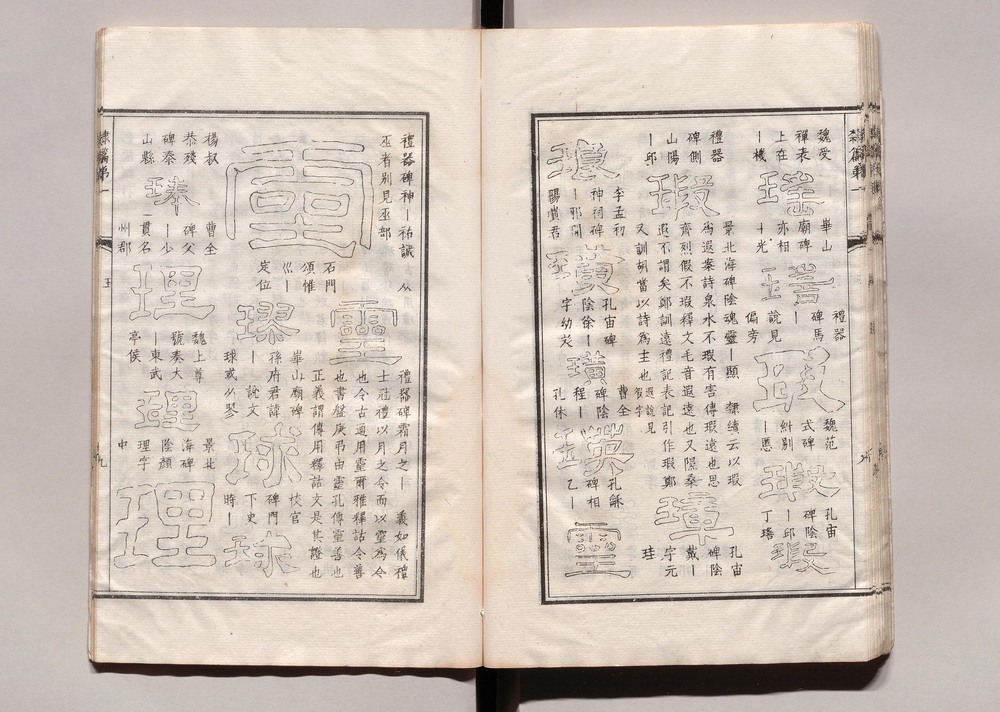 魏受
禪表
上在
｜機
華山
廟碑
亦相
｜光
禮器
碑馬
｜
說見
偏旁
魏范
式碑
糾剔
｜慝
孔宙
碑陰
｜邱
丁瑤
瑕
禮器
碑側
山陽
｜邱
瑕
景北海碑陰魂靈｜顯　隸續云以瑕
為遐案詩泉水不瑕有害傳瑕遠也思
齊烈假不瑕釋文毛音遐遠也又隰桑
遐不謂矣鄭訓遠禮記表記引作瑕鄭
又訓胡當以詩為主也
遐說見
叚字
璋
孔宙
碑陰
戴｜
字元
珪
李孟初
神祠碑
｜邪
陽貴君
孔宙碑
陰徐｜
字幼
璜
曹全
碑陰
程｜
孔休
孔龢
碑相
乙｜
靈
禮器碑神｜祐誠　从
巫者別見巫部
靈
石門
頌惟
巛｜
定位
靈
禮器碑霜月之｜　義如儀禮
士䘮禮以月之令而以靈為令
也令古通用靈爾雅釋詁令善
也書盤庚弔由靈孔傳靈善也
正義謂傳用釋詁文是其證也
璆
華山廟碑
孫府君諱
｜　說文
球或从翏
球
校官
碑門
下史
時｜
球
楊叔
恭殘
碑泰
山縣
｜
曹全
碑父
｜少
貫名
州郡
理
魏上尊
號奏大
｜東武
亭侯
理
景北
海碑
陰顏
理字
中
理
隸篇第一
五